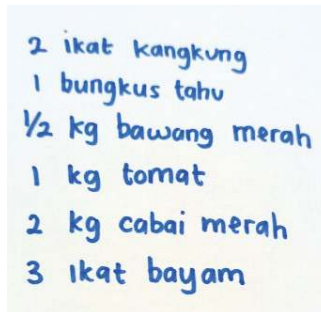 2 ikat kangkung
1 bungkus tahu
1/2 kg bawang merah
1 kg tomat
2 kg cabai merah
3 ikat bayam